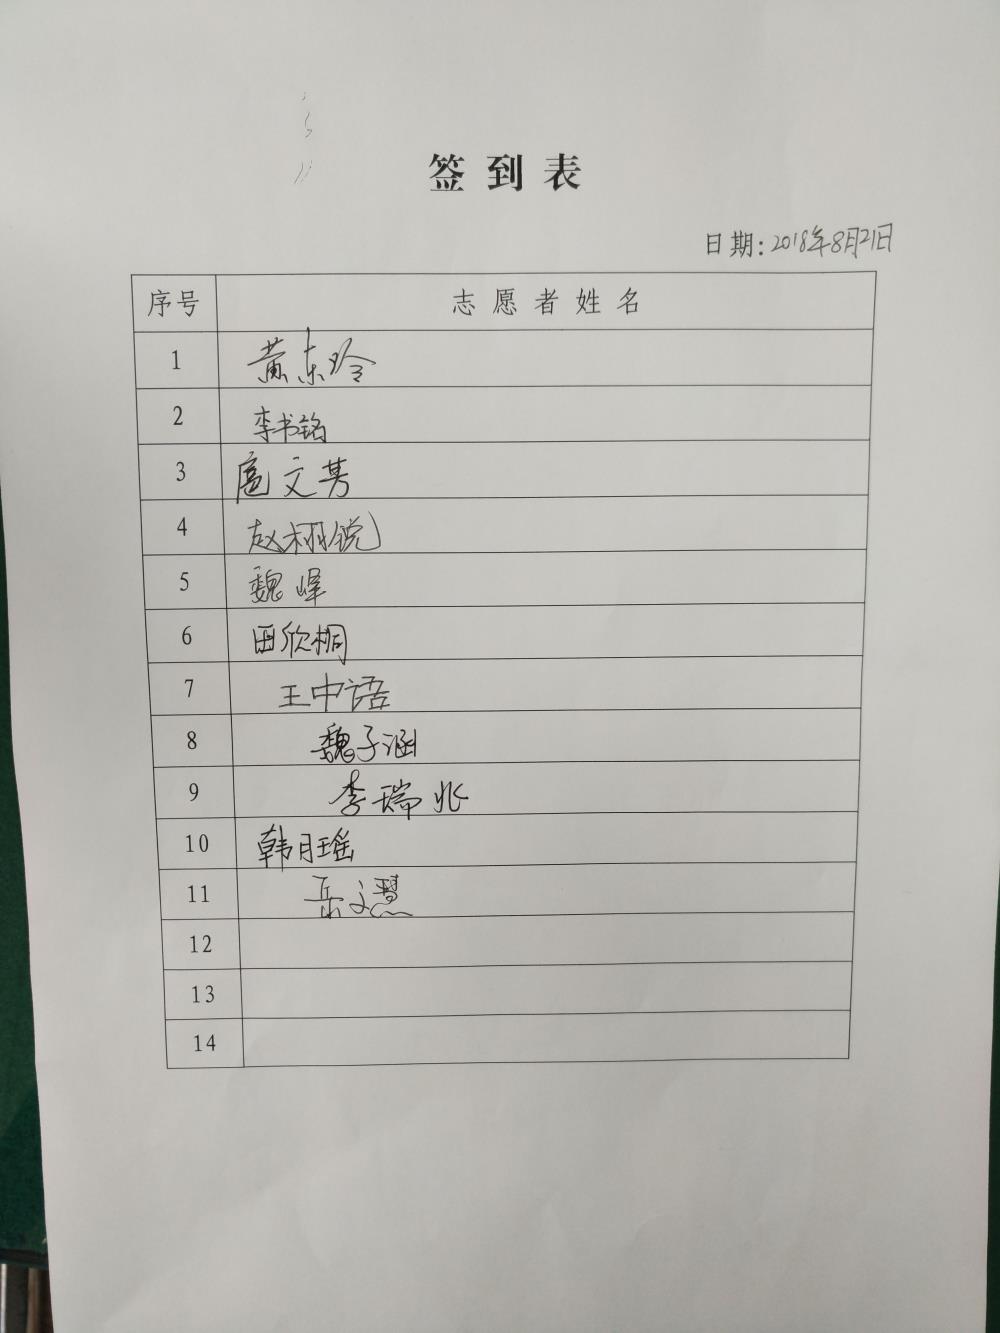 签到表
日期:2018年8月21日
序号 志愿者姓名
1 黄东玲
2 李书铭
3 扈文芳
4 赵栩锐
5 魏峰
6 田欣桐
7 王中语
8 魏子涵
9 李瑞兆
10 韩月瑶
11 岳文慧
12
13
14